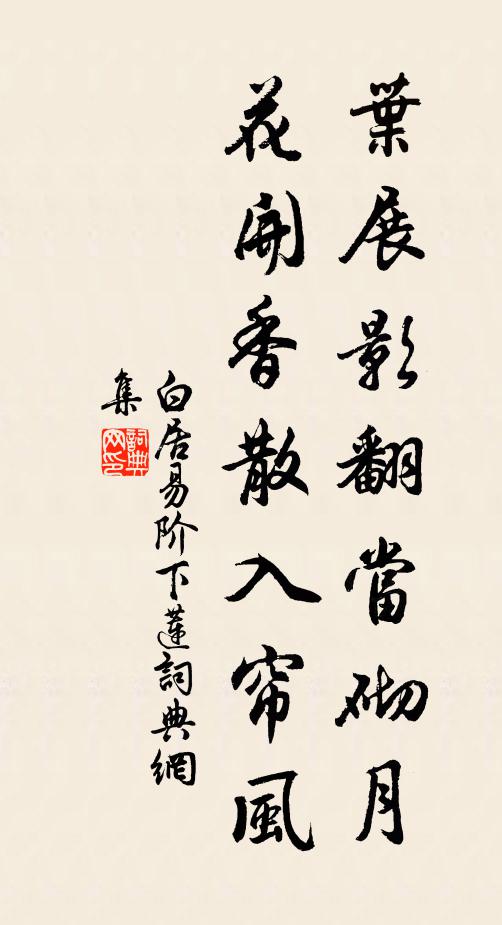 葉展影翻當砌月
花開香散入帘風
白居易阶下蓮詞典網
集
詞典
网印